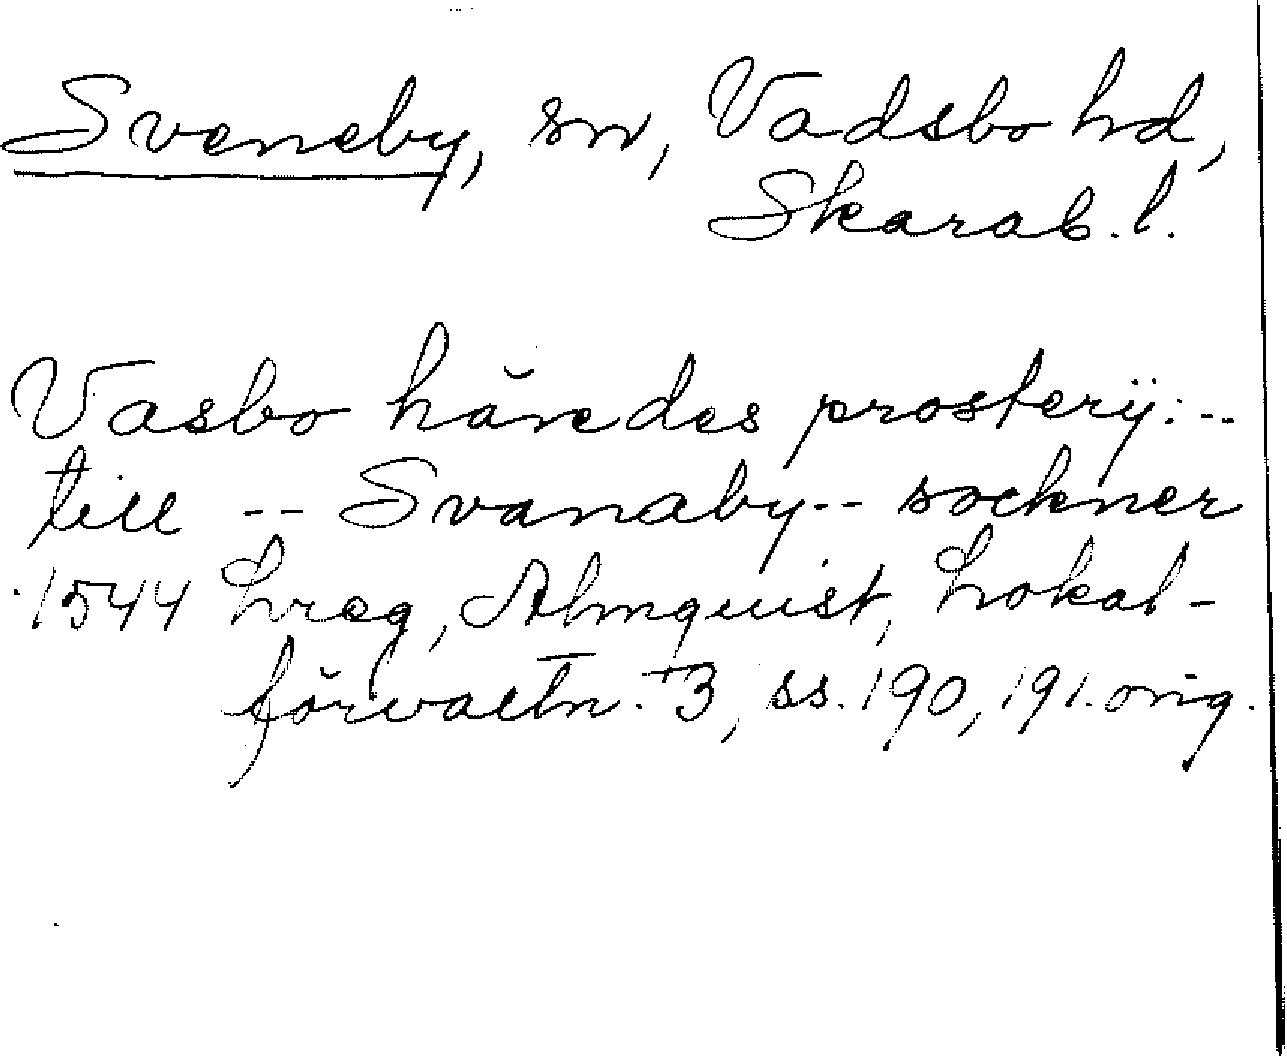 Sveneby, sn, Vadsbo hd,
Skarab. l.
Vasbo häredes prosterÿ: --
till -- Svanaby -- sockner
1544 Lreg, Almquist, Lokal-
förvaltn. 3, ss. 190, 191. orig.